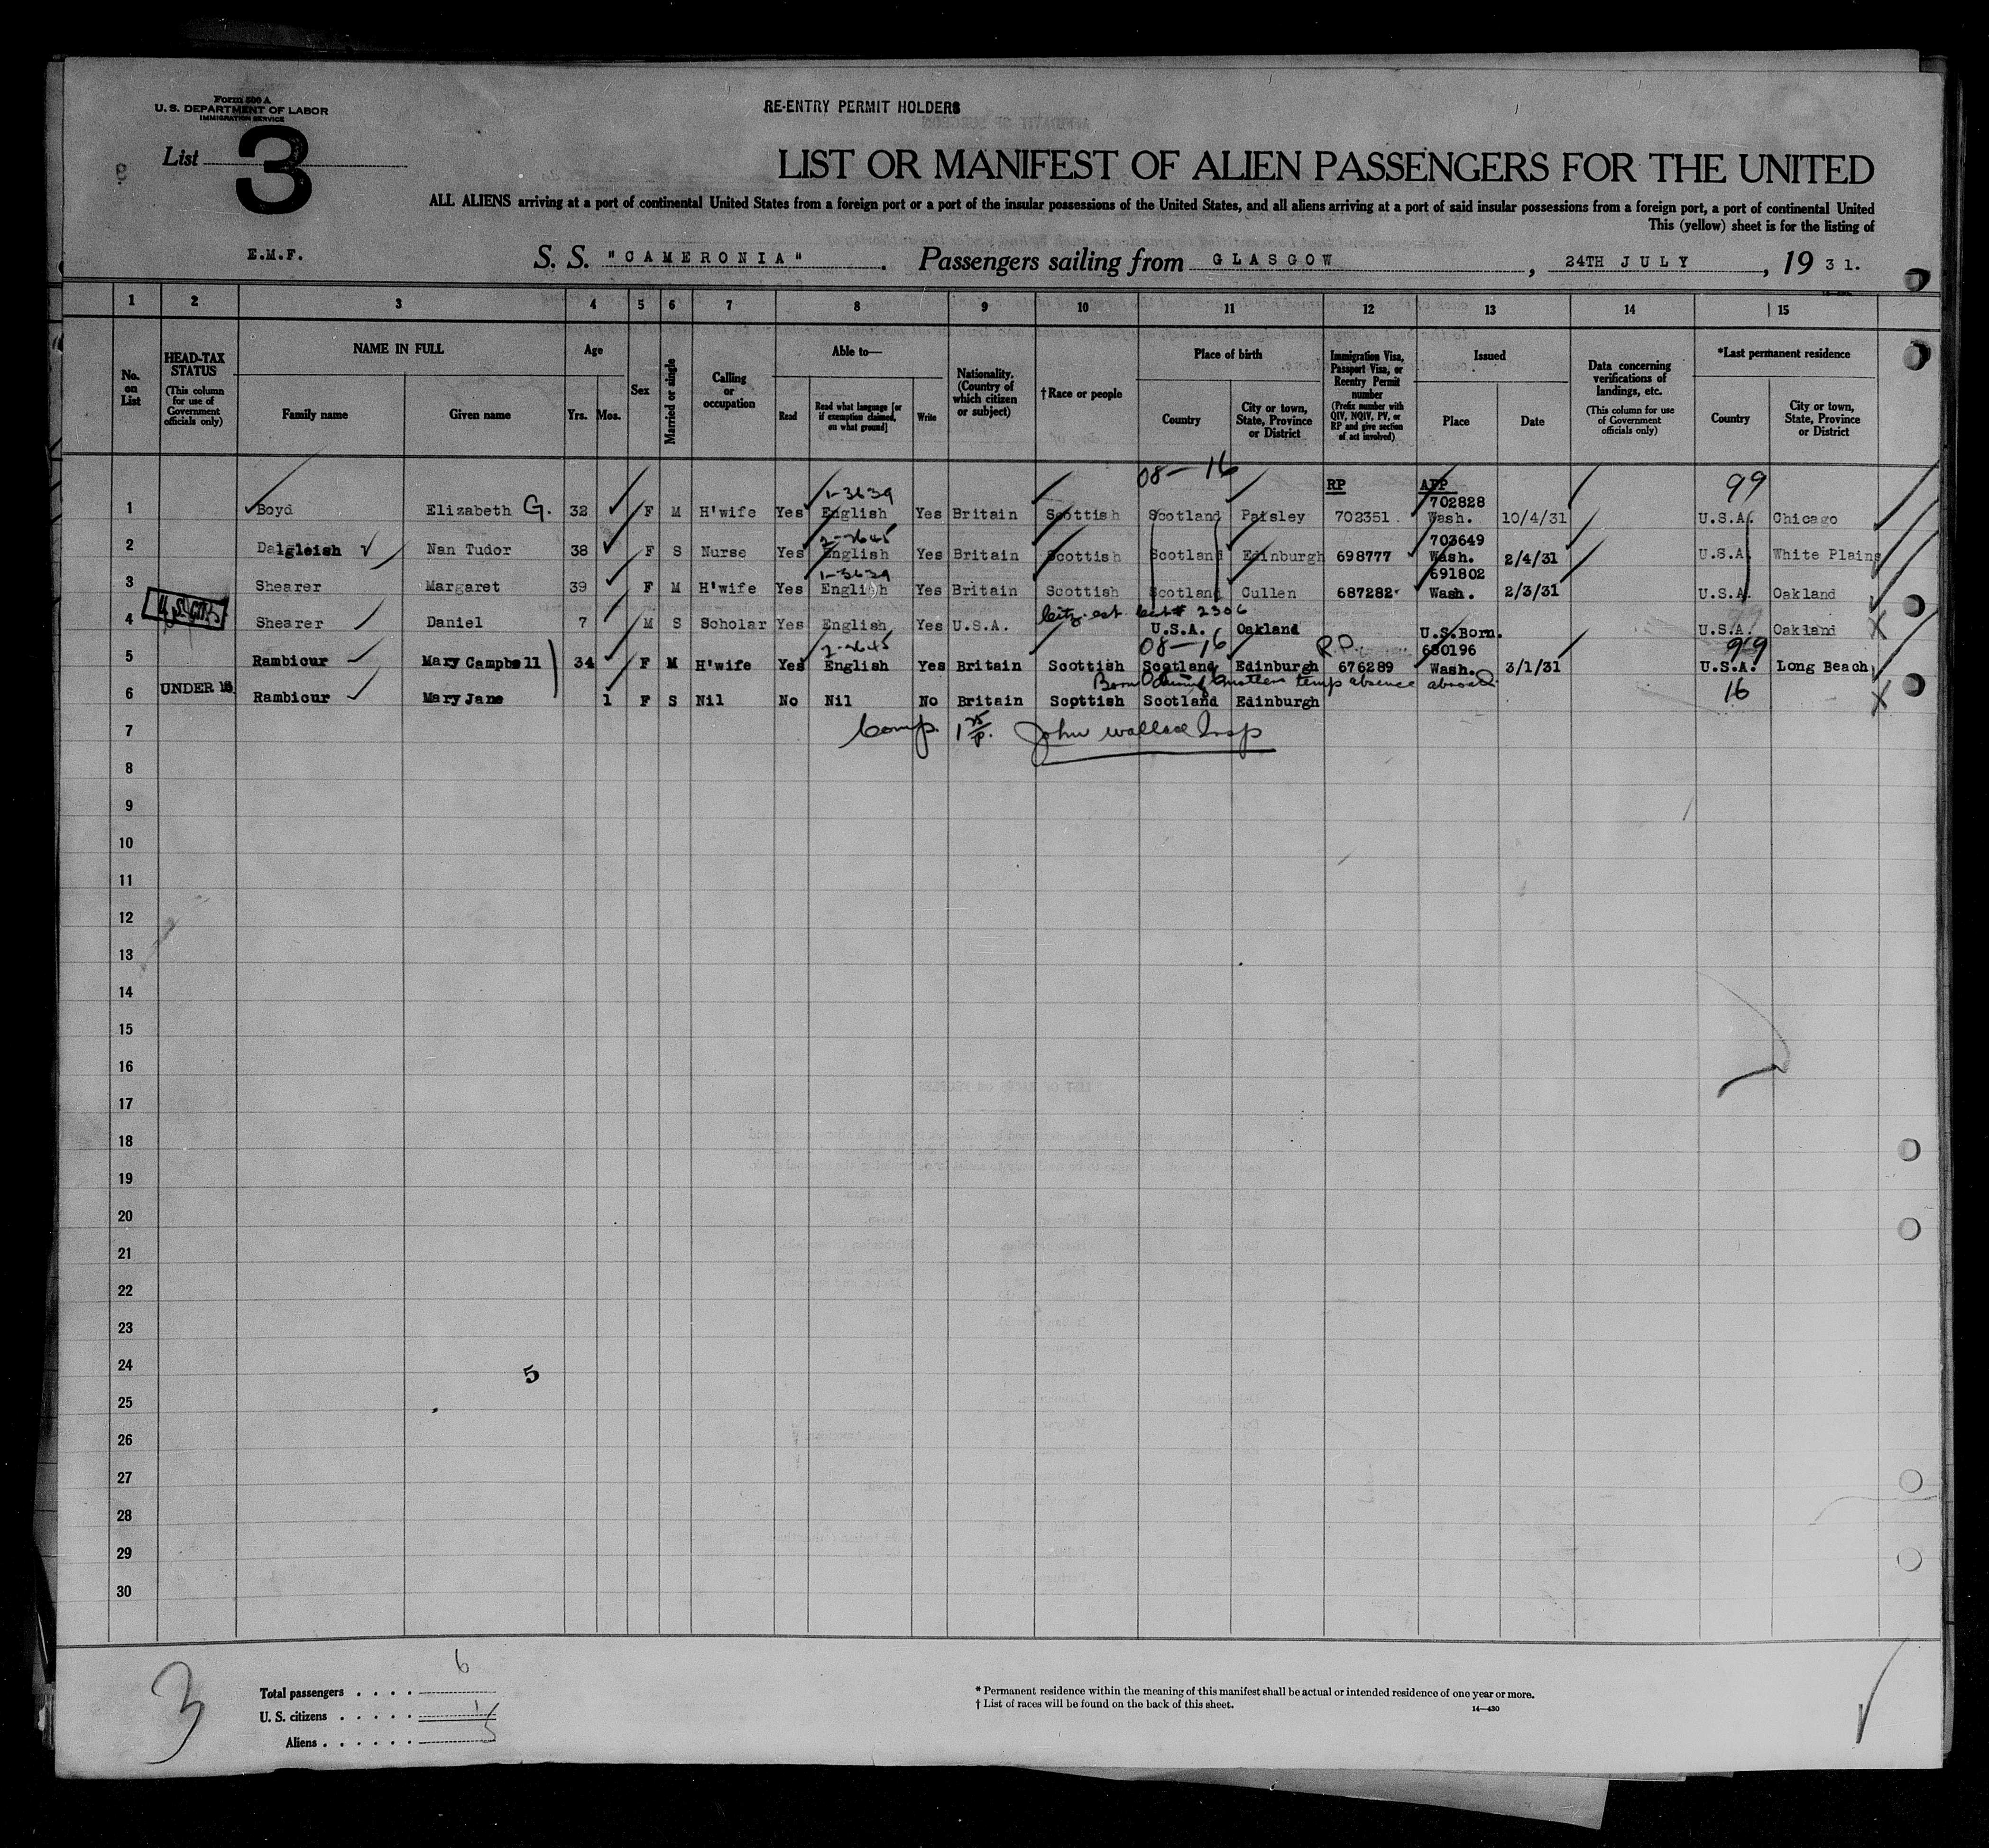 Form 500 A
U. S. DEPARTMENT OF LABOR
IMMIGRATION SERVICE
RE-ENTRY PERMIT HOLDERS
List 3
LIST OR MANIFEST OF ALIEN PASSENGERS FOR THE UNITED
ALL ALIENS arriving at a port of continental United States from a foreign port or a port of the insular possessions of the United States, and all aliens arriving at a port of said insular possessions from a foreign port, a port of continental United
This (yellow) sheet is for the listing of
E.M.F.
S. S. "CAMERONIA". Passengers sailing from GLASGOW, 24TH JULY, 1931.
1 2 3 4 5 6 7 8 9 10 11 12 13 14 15
No. on List
HEAD-TAX STATUS
(This column for use of Government officials only)
NAME IN FULL
Family name
Given name
Age
Yrs. Mos.
Sex
Married or single
Calling or occupation
Able to—
Read
Read what language [or if exemption claimed, on what ground]
Write
Nationality. (Country of which citizen or subject)
†Race or people
Place of birth
Country
City or town, State, Province or District
Immigration Visa, Passport Visa, or Reentry Permit number
(Prefix number with QIV, NQIV, PV, or RP and give section of act involved)
Issued
Place
Date
Data concerning verifications of landings, etc.
(This column for use of Government officials only)
*Last permanent residence
Country
City or town, State, Province or District
08—16
RP APP 99
1-3639 702828
1 Boyd Elizabeth G. 32 F M H'wife Yes English Yes Britain Scottish Scotland Paisley 702351. Wash. 10/4/31 U.S.A. Chicago
2-3645 703649
2 Dalgleish Nan Tudor 38 F S Nurse Yes English Yes Britain Scottish Scotland Edinburgh 698777 Wash. 2/4/31 U.S.A. White Plains
1-3639 691802
3 Shearer Margaret 39 F M H'wife Yes English Yes Britain Scottish Scotland Cullen 687282 Wash. 2/3/31 U.S.A. Oakland
Citz. est. # 2306
4 Shearer Daniel 7 M S Scholar Yes English Yes U.S.A. U.S.A. Oakland U.S.Born. U.S.A. Oakland X
2-3645 08—16 R.P. 680196 99
5 Rambiour Mary Campbell 34 F M H'wife Yes English Yes Britain Scottish Scotland Edinburgh 676289 Wash. 3/1/31 U.S.A. Long Beach
Born during mothers temp absence abroad 16
6 UNDER 16 Rambiour Mary Jane 1 F S Nil No Nil No Britain Scottish Scotland Edinburgh X
7 John Wallace Insp
8
9
10
11
12
13
14
15
16
17
18
19
20
21
22
23
24
5
25
26
27
28
29
30
3
Total passengers . . . . 6
U. S. citizens . . . . . 1
Aliens . . . . . . 5
* Permanent residence within the meaning of this manifest shall be actual or intended residence of one year or more.
† List of races will be found on the back of this sheet.
14—430